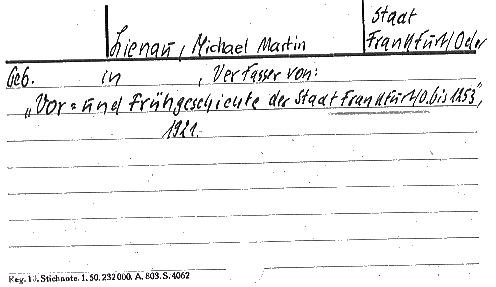 Stadt
Lienau, Michael Martin Frankfurt/Oder
Geb. in , Verfasser von:
„Vor= und Frühgeschichte der Stadt Frankfurt/O. bis 1253",
1921.
Reg. 10. Stichnote. 1. 50. 232000. A. 803. S. 4062